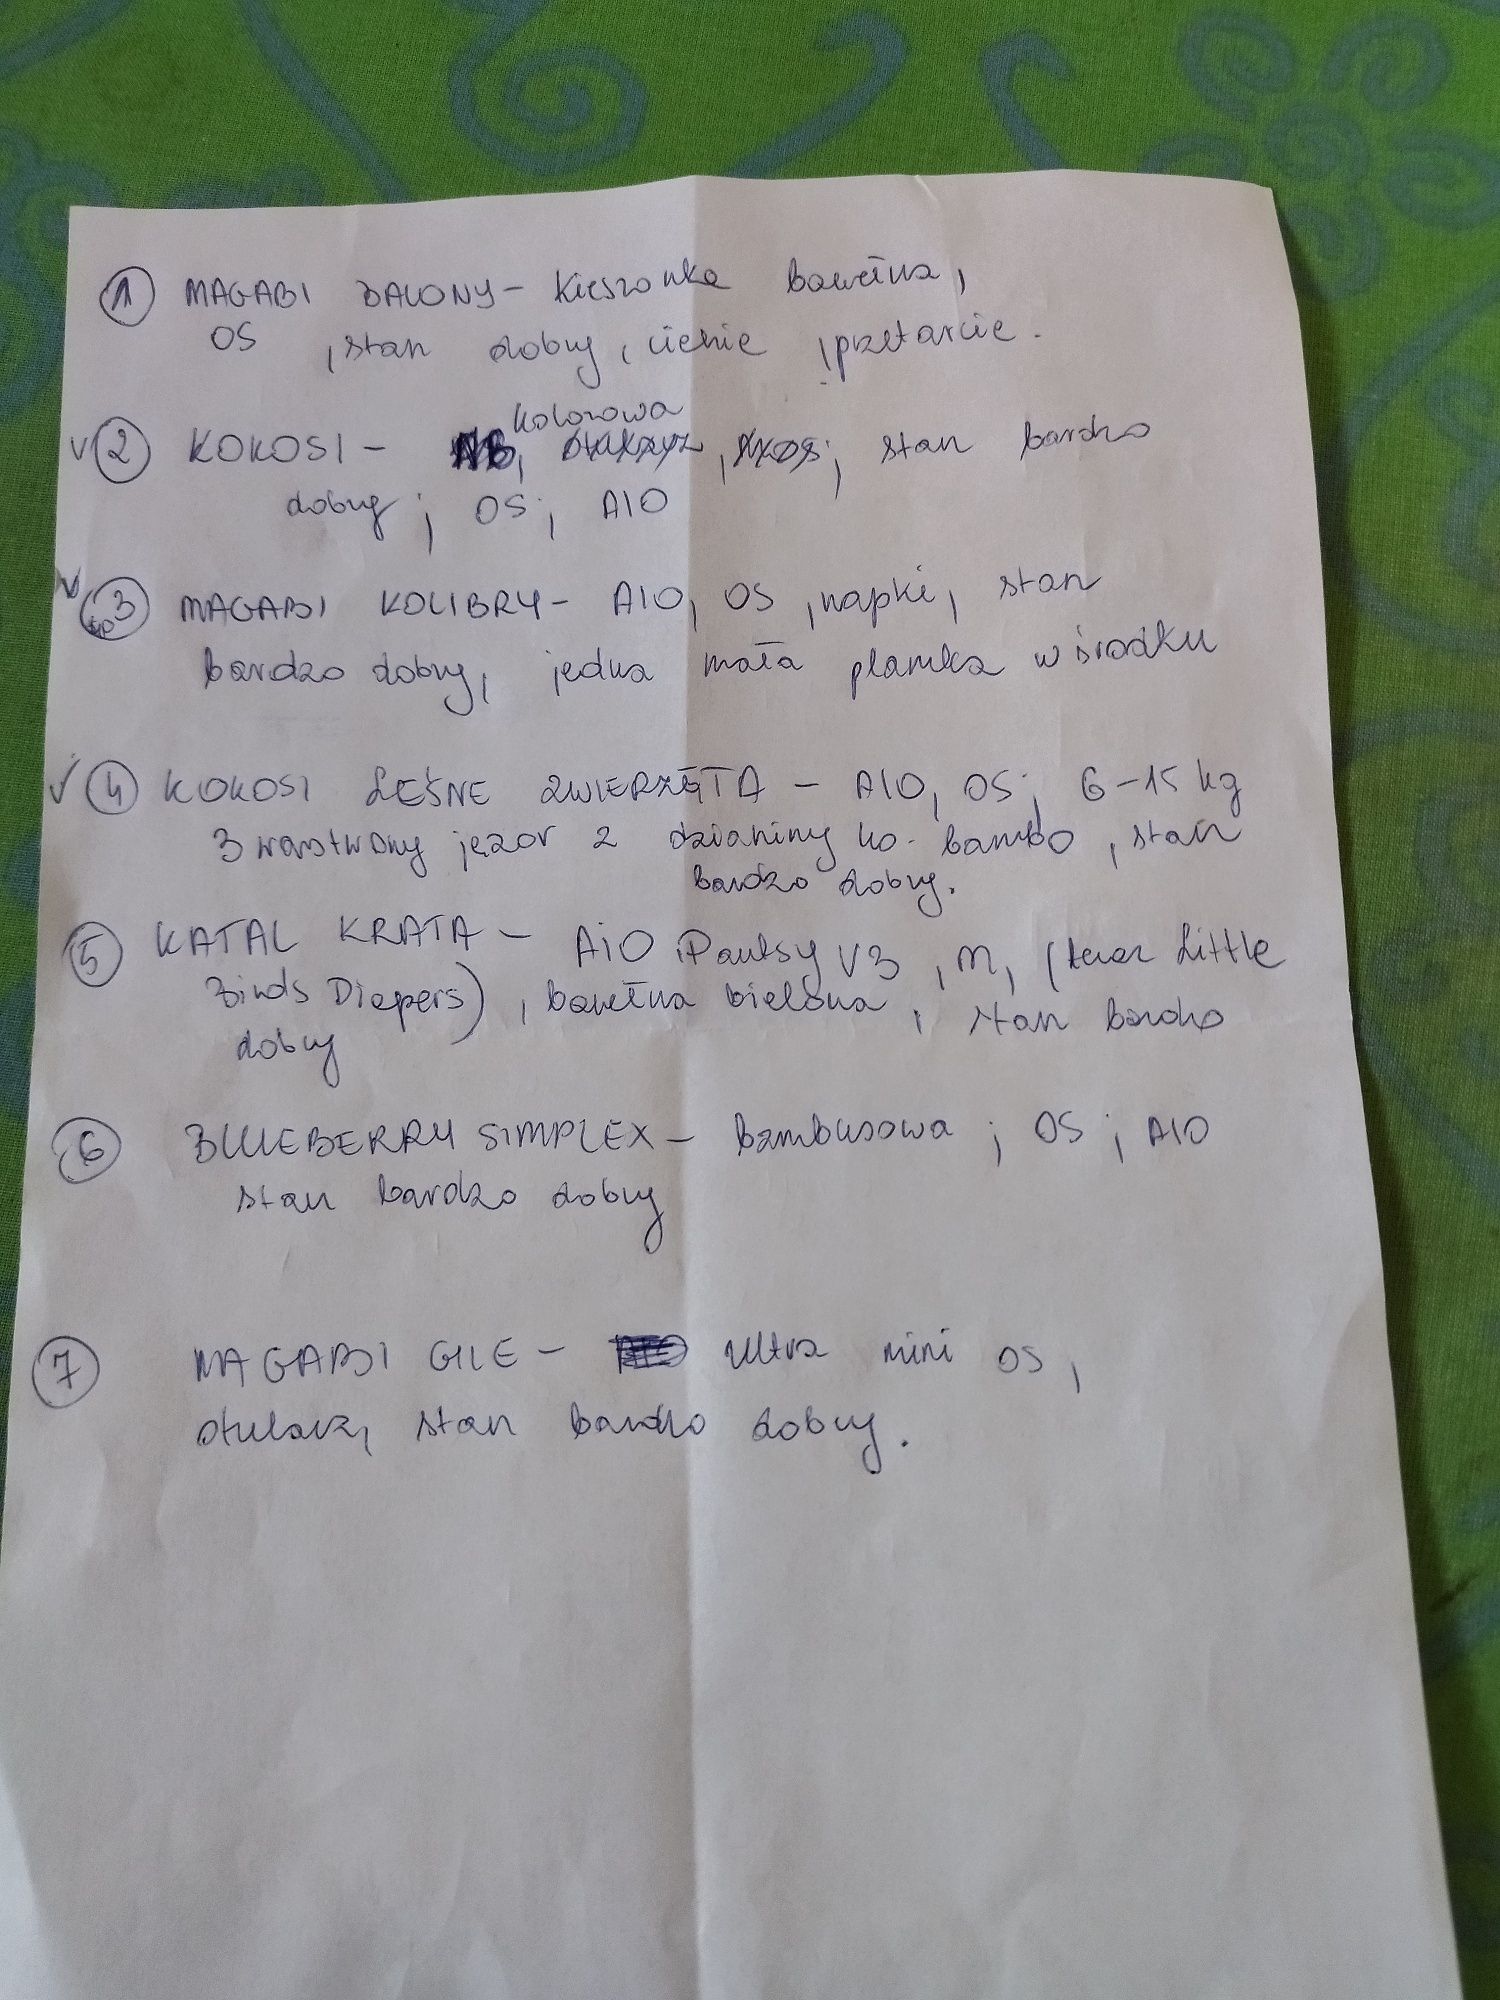 ① MAGABI BALONY - Kieszonka bawełna,
OS , stan dobry, cienie , przetarcie.
kolorowa
v ② KOKOSI - stan bardzo
dobry ; OS ; AIO
v ③ MAGABI KOLIBRY - AIO, OS , napki, stan
bardzo dobry, jedna mała plamka w środku
✓ ④ KOKOSI LEŚNE ZWIERZĘTA - AIO, OS; 6-15 kg
3 warstwowy jęzor z dzianiny ko-bambo , stan
bardzo dobry.
⑤ KATAL KRATA - AIO Pautsy V3 , M, (teraz Little
Birds Diapers) , bawełna bielona , stan bardzo
dobry
⑥ BLUEBERRY SIMPLEX - bambusowa ; OS ; AIO
stan bardzo dobry
⑦ MAGABI GILE - Ultra mini OS,
otulacz, stan bardzo dobry.